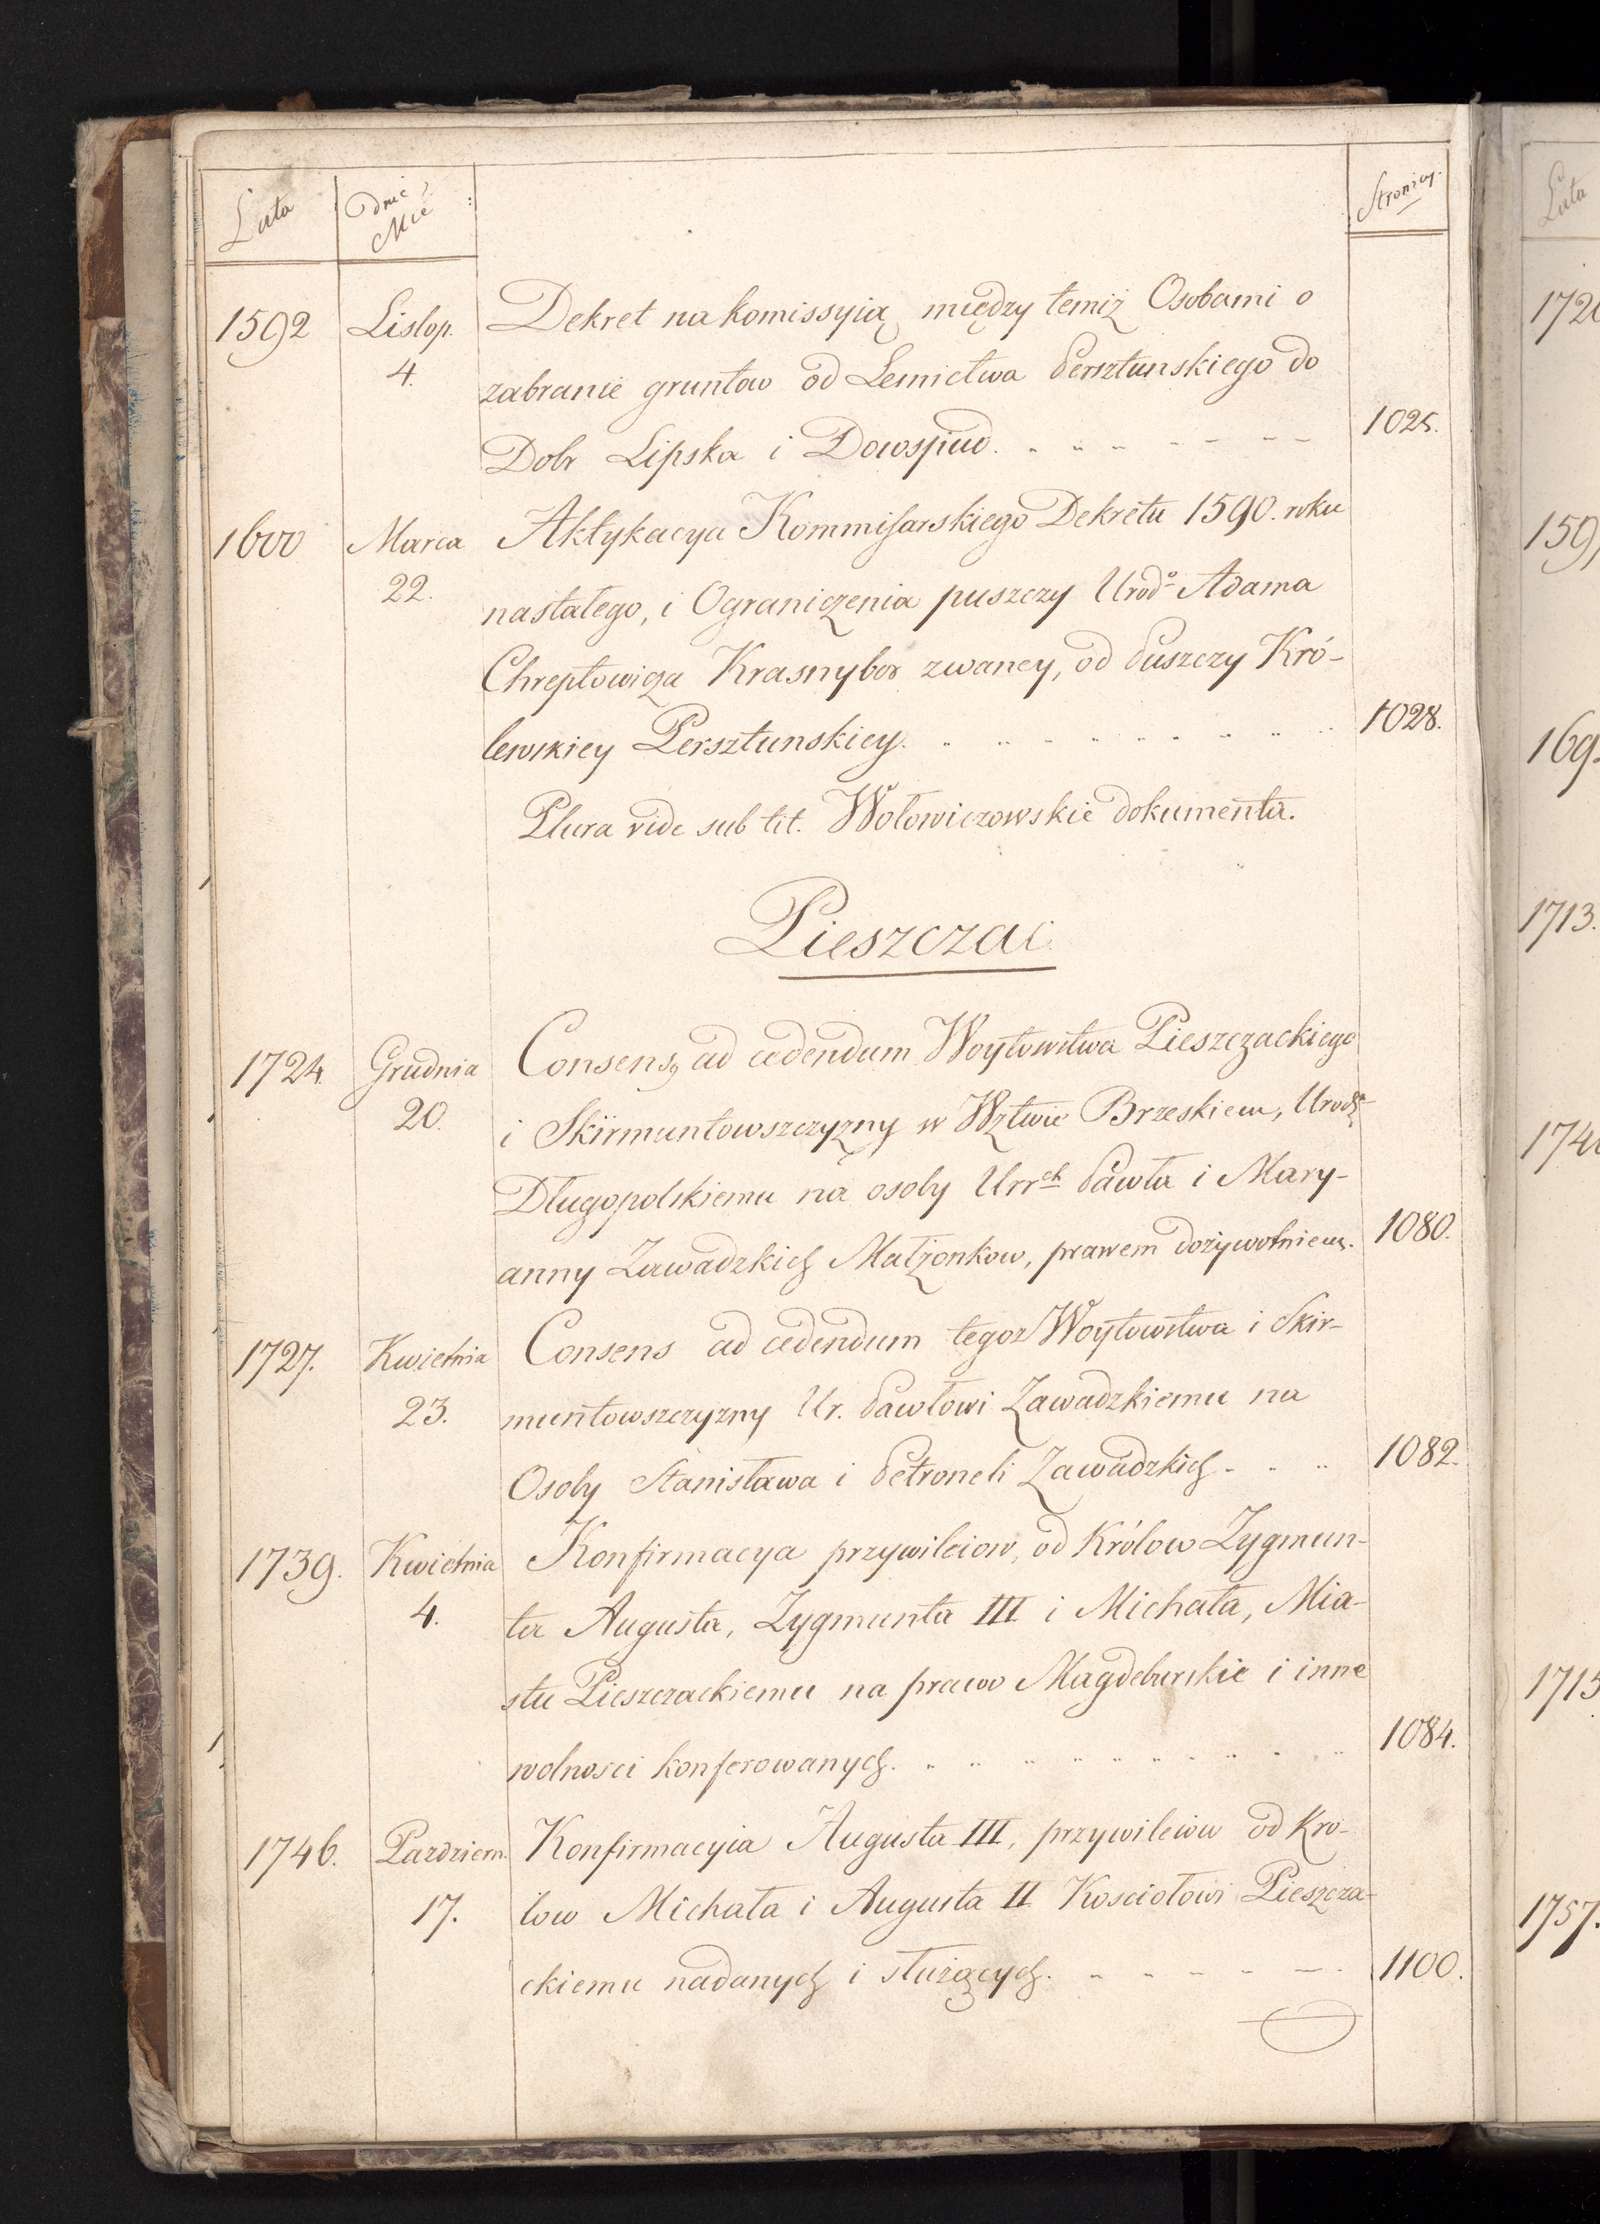 Lata Dnie, Mce Stronicy.
1592 Listop. Dekret na komissyią między temiż Osobami o
4. zabranie gruntow od Lesnictwa Persztunskiego do
Dobr Lipska i Dowspud. 1025.
1600 Marca Aktykacya Kommissarskiego Dekretu 1590. roku
22. nastałego, i Ograniczenia puszczy Urodo Adama
Chreptowicza Krasnybor zwaney, od Puszczy Kró-
lewskiey Persztunskiey. 1028.
Plura vide sub tit. Wołowiczowskie dokumenta.
Pieszczac
1724. Grudnia Consens, ad cedendum Woytowstwa Pieszczackiego
20. i Skirmuntowszczyzny w Wztwie Brzeskiem, Urodz
Długopolskiemu na osoby Urrch Pawła i Mary-
anny Zawadzkich Małżonkow, prawem dożywotniem. 1080.
1727. Kwietnia Consens ad cedendum tegoz Woytowstwa i Skir-
23. muntowszczyzny Ur. Pawłowi Zawadzkiemu na
Osoby Stanisława i Petroneli Zawadzkich 1082.
1739. Kwietnia Konfirmacya przywileiow, od Królow Zygmun-
4. ta Augusta, Zygmunta III i Michała, Mia-
stu Pieszczackiemu na prawo Magdeburskie i inne
wolnosci konferowanych. 1084.
1746. Pazdziern. Konfirmacyia Augusta III, przywileiow od Kro-
17. low Michała i Augusta II Kosciołowi Pieszcza-
ckiemu nadanych i służących. 1100.
Lata
1713.
1757.